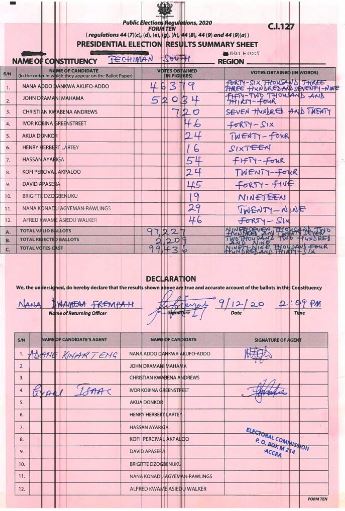 Public Elections Regulations, 2020
FORM TEN
C.I.127
PRESIDENTIAL ELECTION RESULTS SUMMARY SHEET
NAME OF CONSTITUENCY TECHIMAN SOUTH REGION
S/N NAME OF CANDIDATE VOTES OBTAINED VOTES OBTAINED (IN WORDS)
(In the order in which they appear on the Ballot Paper) (IN FIGURES)
1. NANA ADDO DANKWA AKUFO-ADDO 46379 FORTY-SIX THOUSAND THREE HUNDRED AND SEVENTY-NINE
2. JOHN DRAMANI MAHAMA 52034 FIFTY-TWO THOUSAND AND THIRTY-FOUR
3. CHRISTIAN KWABENA ANDREWS 720 SEVEN HUNDRED AND TWENTY
4. IVOR KOBINA GREENSTREET 46 FORTY-SIX
5. AKUA DONKOR 24 TWENTY-FOUR
6. HENRY HERBERT LARTEY 16 SIXTEEN
7. HASSAN AYARIGA 54 FIFTY-FOUR
8. KOFI PERCIVAL AKPALOO 24 TWENTY-FOUR
9. DAVID APASERA 45 FORTY-FIVE
10. BRIGITTE DZOGBENUKU 19 NINETEEN
11. NANA KONADU AGYEMAN-RAWLINGS 29 TWENTY-NINE
12. ALFRED KWAME ASIEDU WALKER 46 FORTY-SIX
A. TOTAL VALID BALLOTS 97,227
B. TOTAL REJECTED BALLOTS 2,209
C. TOTAL VOTES CAST 99,436
DECLARATION
We, the undersigned, do hereby declare that the results shown above are true and accurate account of the ballots in this Constituency
NANA 9/12/20 2:59 PM
Name of Returning Officer Signature Date Time
S/N NAME OF CANDIDATE'S AGENT NAME OF CANDIDATE SIGNATURE OF AGENT
1. KWARTENG NANA ADDO DANKWA AKUFO-ADDO
2. JOHN DRAMANI MAHAMA
3. CHRISTIAN KWABENA ANDREWS
4. ISAAC IVOR KOBINA GREENSTREET
5. AKUA DONKOR
6. HENRY HERBERT LARTEY
7. HASSAN AYARIGA
8. KOFI PERCIVAL AKPALOO
9. DAVID APASERA
10. BRIGITTE DZOGBENUKU
11. NANA KONADU AGYEMAN-RAWLINGS
12. ALFRED KWAME ASIEDU WALKER
ELECTORAL COMMISSION
P. O. BOX M 214
ACCRA
FORM TEN